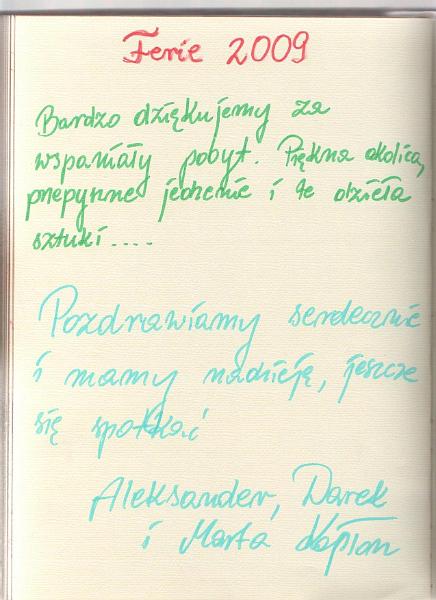 Ferie 2009
Bardzo dziękujemy za
wspaniały pobyt. Piękna okolica,
przepyszne jedzenie i te dzieła
sztuki....
Pozdrawiamy serdecznie
i mamy nadzieję, jeszcze
się spotkać
Aleksander, Darek
i Marta Kapłon